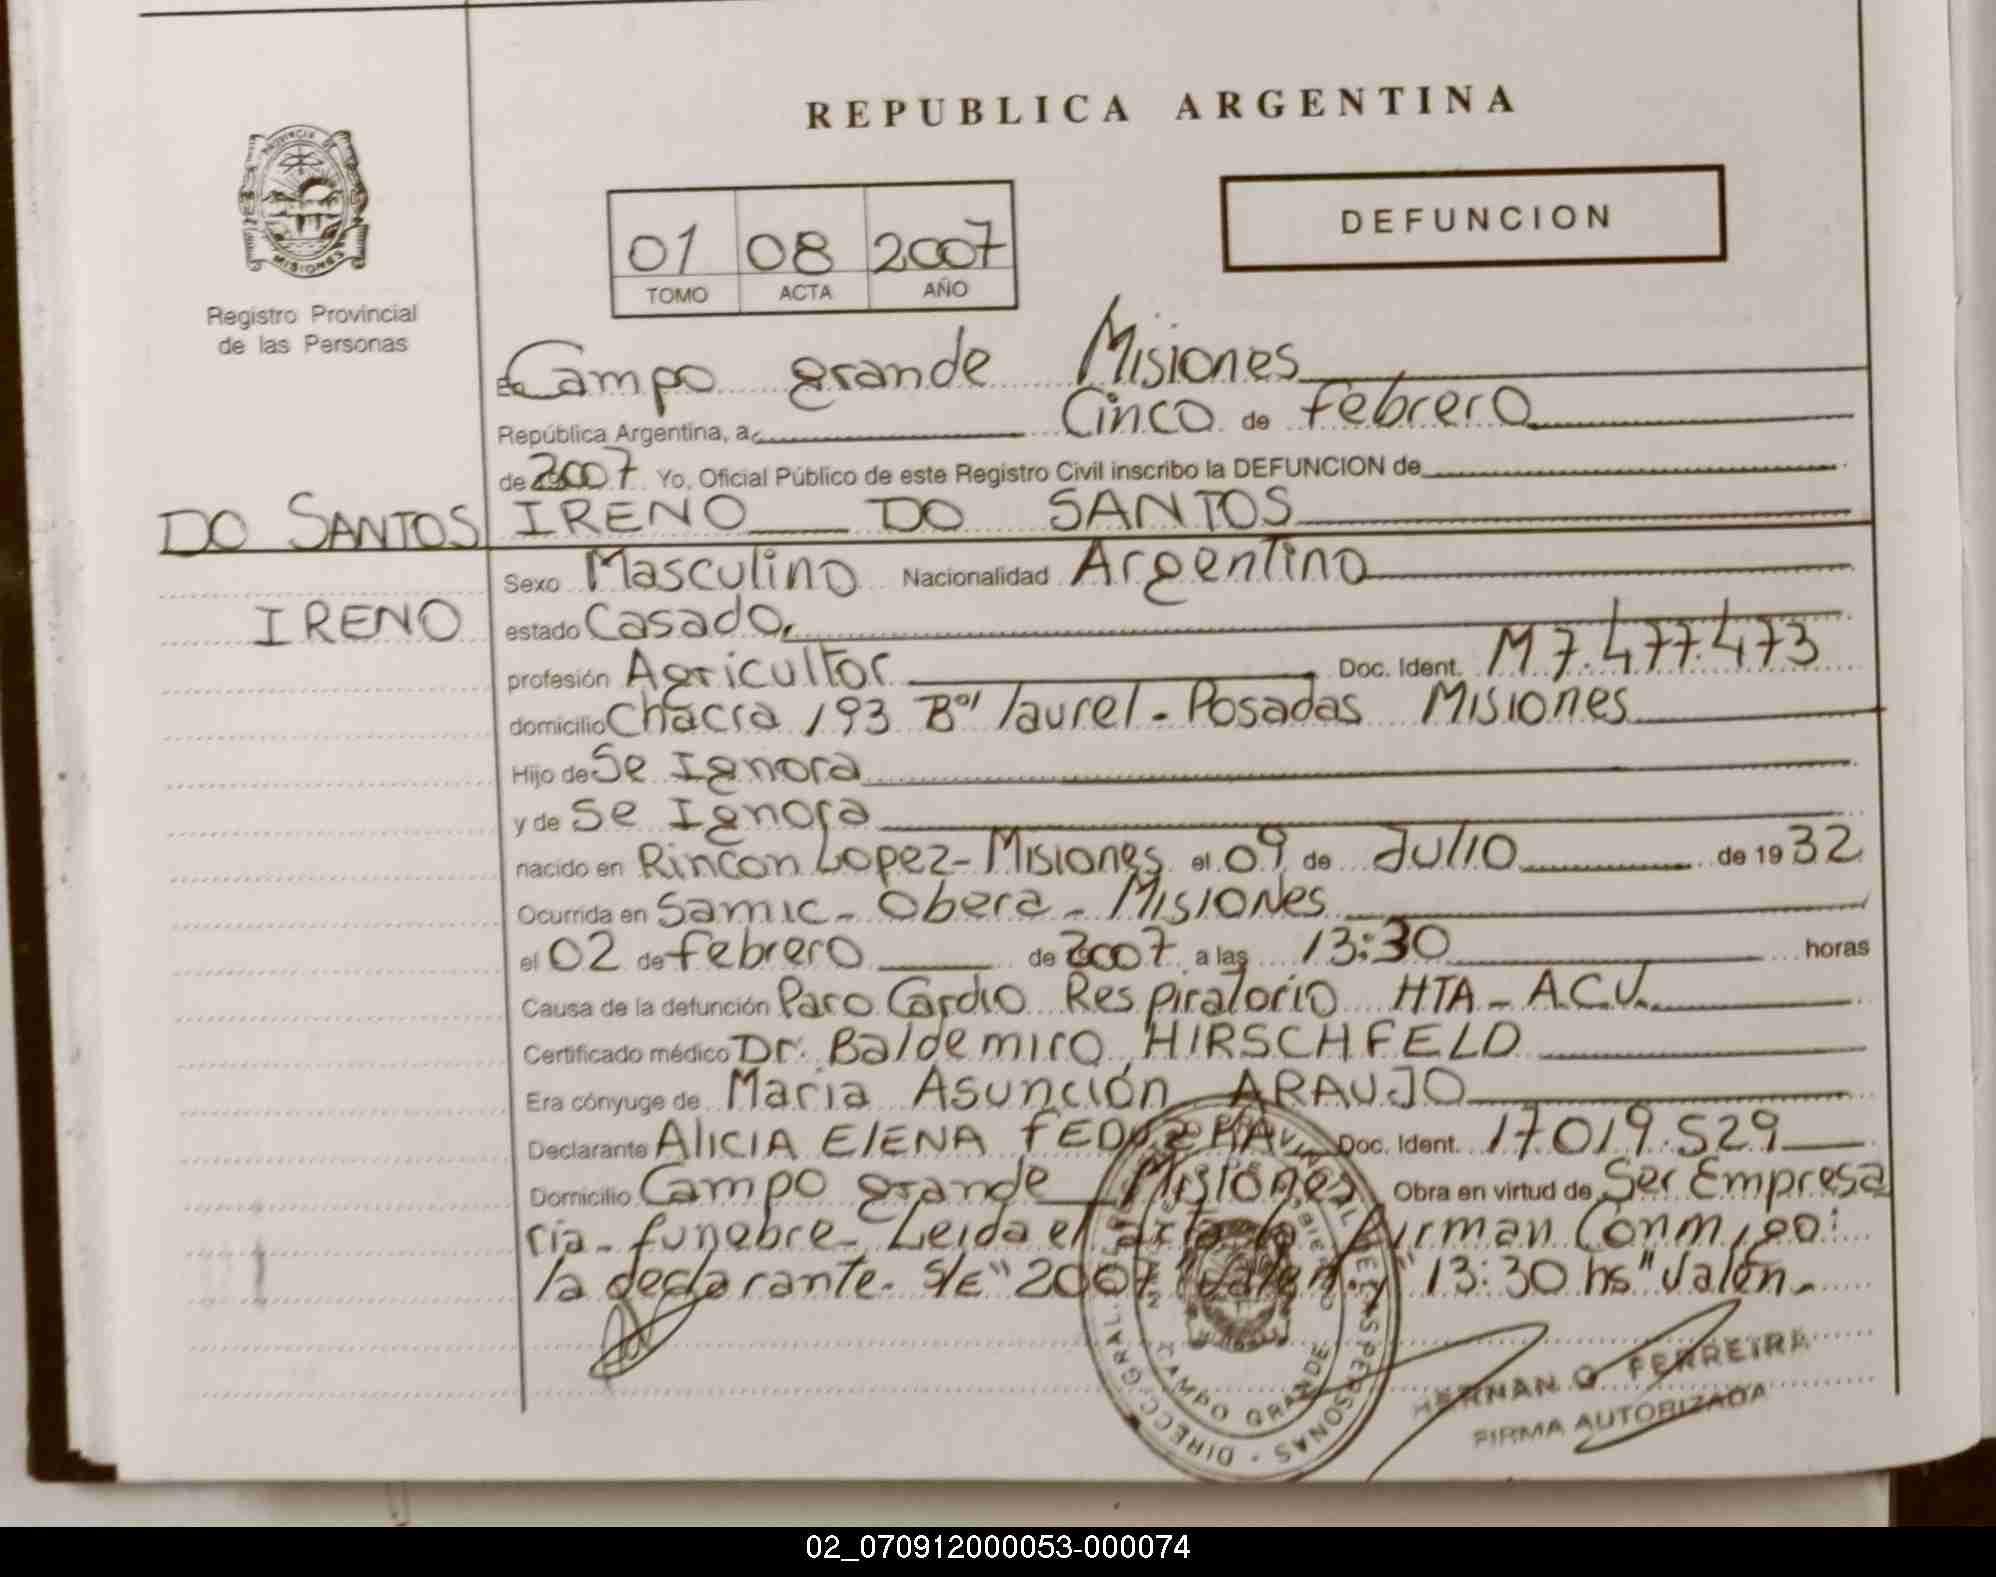 REPUBLICA ARGENTINA
PROVINCIA DE
MISIONES
Registro Provincial
de las Personas
DEFUNCION
01 08 2007
TOMO ACTA AÑO
En Campo grande Misiones
República Argentina, a Cinco de febrero
de 2007 Yo, Oficial Público de este Registro Civil inscribo la DEFUNCION de
DO SANTOS IRENO DO SANTOS
Sexo Masculino Nacionalidad Argentino
IRENO estado Casado.
profesión Agricultor Doc. Ident. M 7.477.473
domicilio Chacra 193 B°/ laurel - Posadas Misiones
Hijo de Se Ignora
y de Se Ignora
nacido en Rincon Lopez - Misiones el 09 de Julio de 1932
Ocurrida en Samic - Obera - Misiones
el 02 de febrero de 2007 a las 13:30 horas
Causa de la defunción Paro Cardio Respiratorio HTA - A.C.V.
Certificado médico Dr. Baldemiro HIRSCHFELD
Era cónyuge de Maria Asunción ARAUJO
Declarante ALICIA ELENA Doc. Ident. 17019.529
Domicilio Campo grande Misiones Obra en virtud de Ser Empresa
ria - funebre - Leida el acta la firman Conmigo:
la declarante - S/E "2007" Valen y "13:30 hs" Valen.
CAMPO GRANDE
HERNAN G FERREIRA
FIRMA AUTORIZADA
02_070912000053-000074